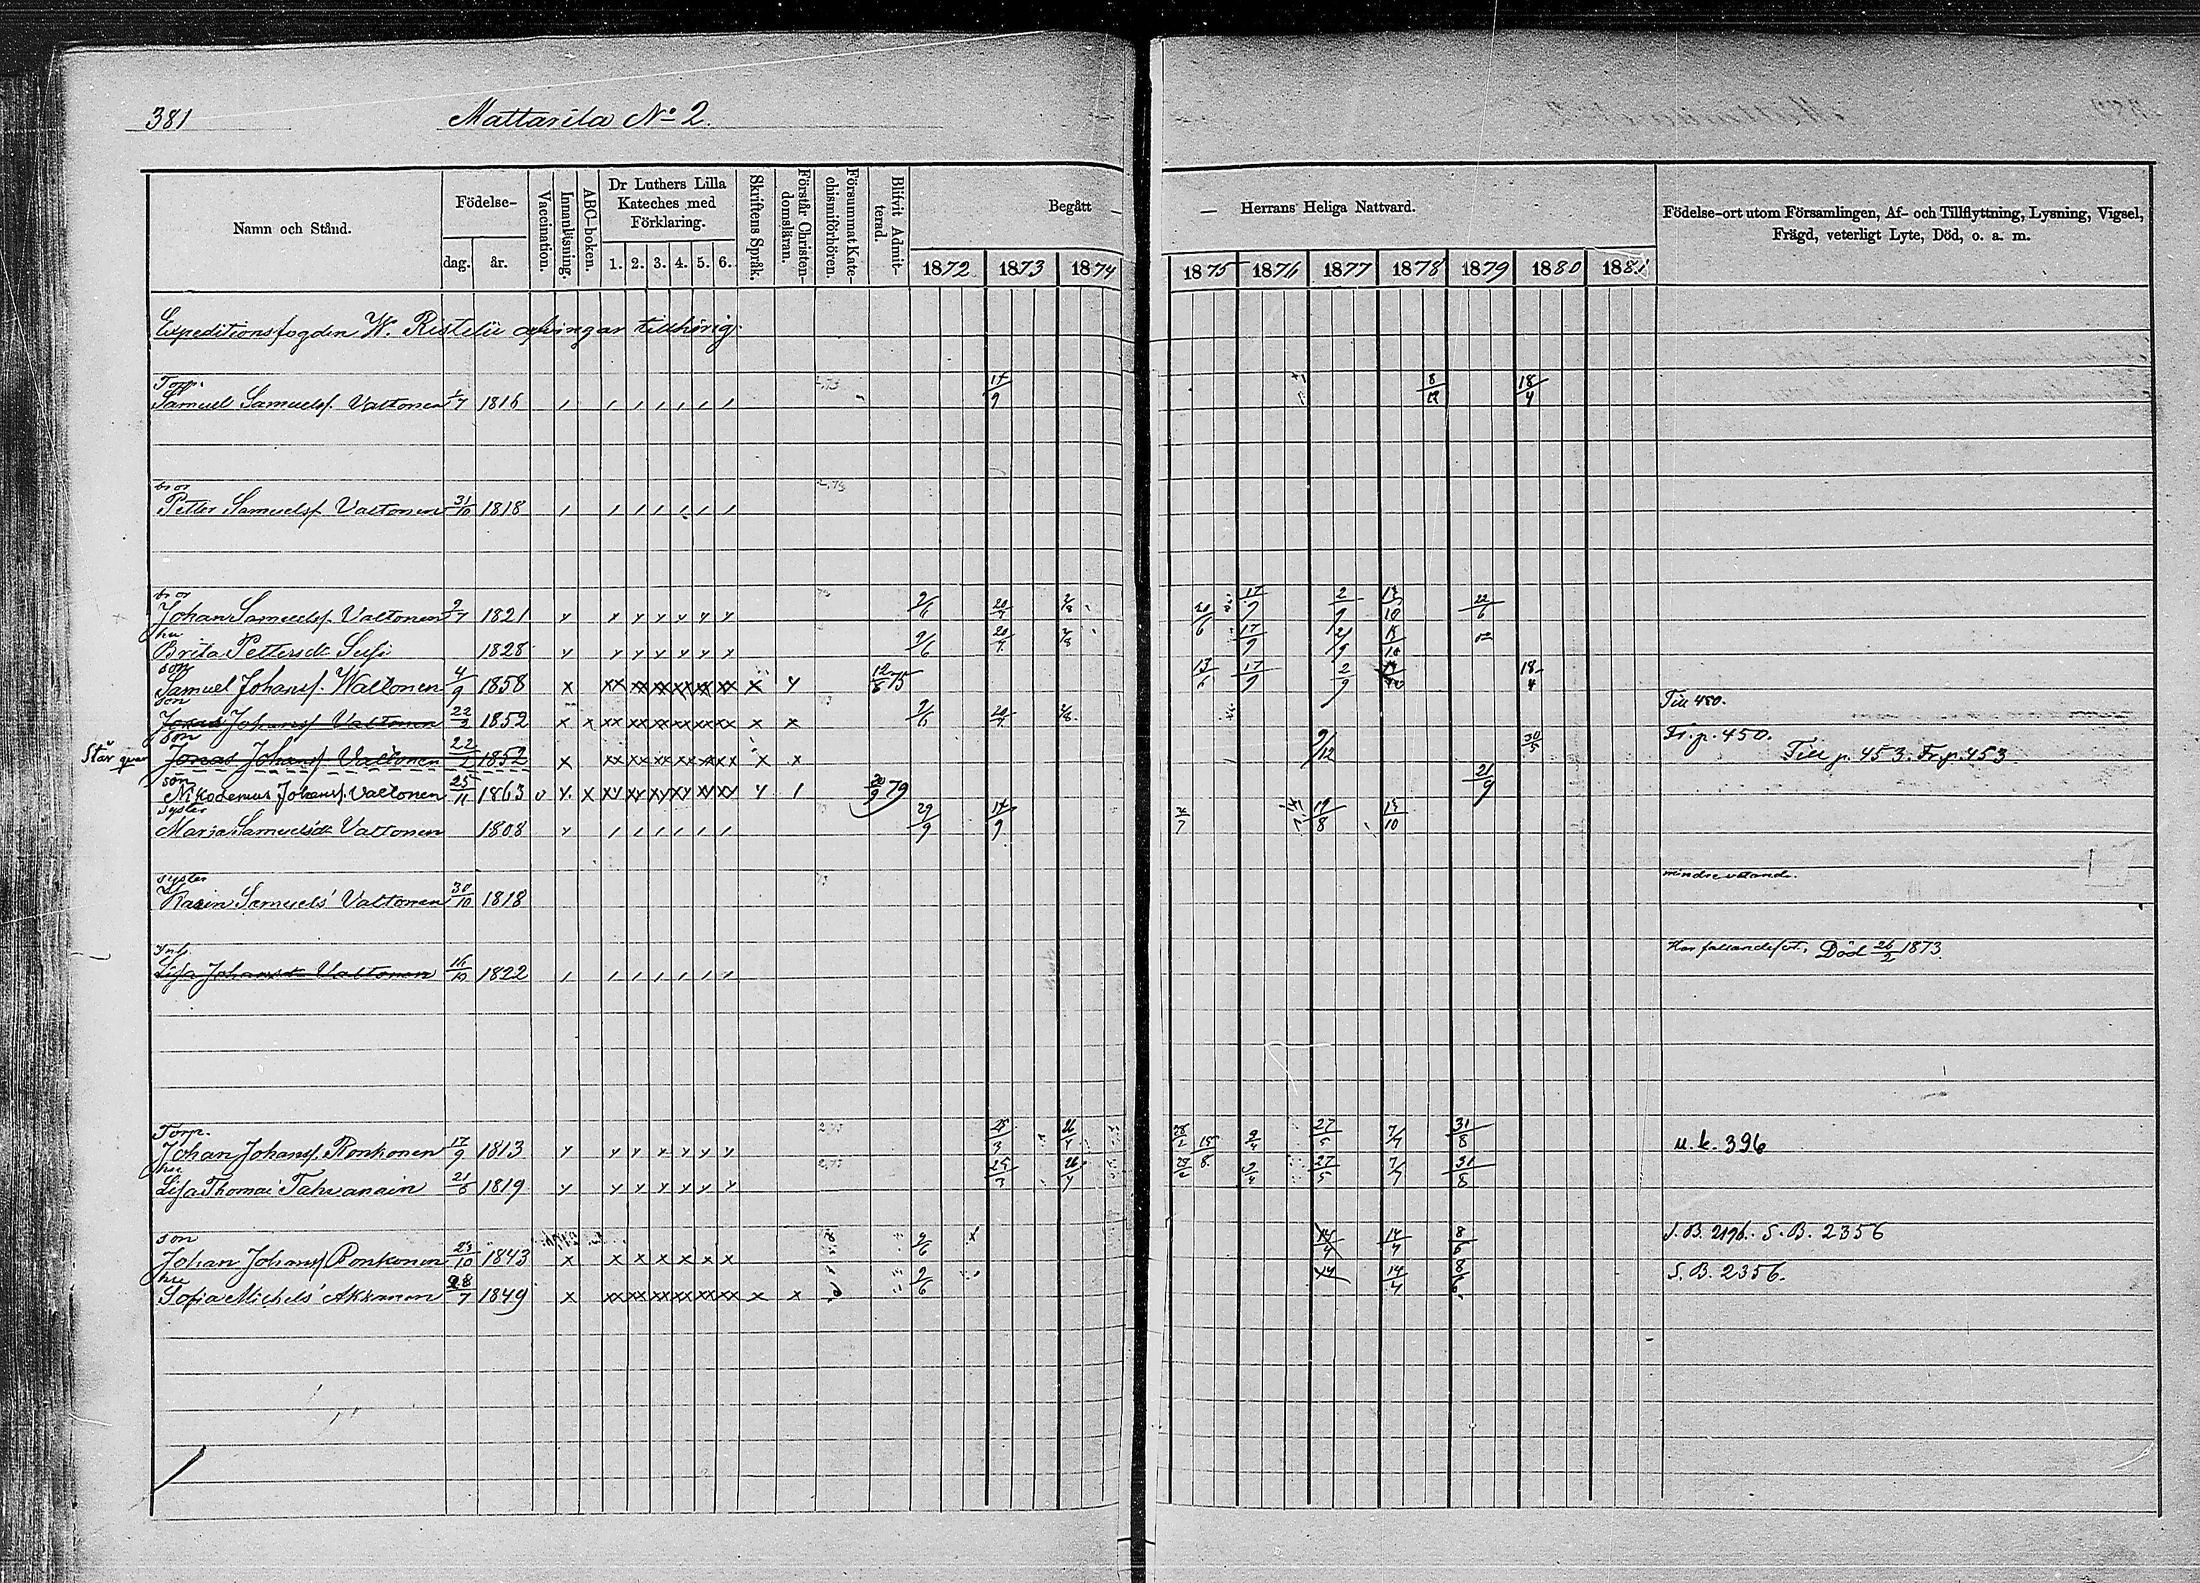 381 Mattarila No 2.
Namn och Stånd.
Födelse-
dag. år.
Vaccination.
Innanläsning.
ABC-boken.
Dr Luthers Lilla
Kateches med
Förklaring.
1. 2. 3. 4. 5. 6.
Skriftens Språk.
Förstår Christen-
domsläran.
Försummat Kate-
chismiförhören.
Blifvit Admit-
terad.
Begått — — Herrans Heliga Nattvard.
1872 1873 1874 1875 1876 1877 1878 1879 1880 1881
Födelse-ort utom Församlingen, Af- och Tillflyttning, Lysning, Vigsel,
Frägd, veterligt Lyte, Död, o. a. m.
Expeditionsfogden W. Ristelii arfvingar tillhörig.
Torp.
Samuel Samuelsf. Valtonen 1816 14/9 8/12 18/4
bror
Petter Samuelsf. Valtonen 31/10 1818
bror
Johan Samuelsf. Valtonen 2/7 1821 9/6 20/7 2/8 20/6 17/9 2/9 13/10 22/6
hu
Brita Pettersdr Susi 1828 9/6 20/7 2/8 17/9 2/9
son
Samuel Johansf. Waltonen 4/9 1858 12/6 75 13/6 17/9 2/9 18/4
son
Jonas Johansf Valtonen 22/2 1852 9/6 20/7 2/8 Till 450.
son
Står qvar Jonas Johansf Valtonen 22/2 1852 9/12 30/5 Fr. p. 450. Till p. 453. Fr. p. 453
son
Nikodemus Johansf. Valtonen 25/11 1863 20/9 79 21/9
syster
Maria Samuelsdr Valtonen 1808 29/9 14/9 19/8 13/10
syster
Karin Samuels' Valtonen 30/10 1818 mindre vetande.
Inh.
Lisa Johansdr Valtonen 16/10 1822 Har fallandesot. Död 26/2 1873.
Torp.
Johan Johansf. Ronkonen 17/9 1813 25/3 26/4 27/5 7/7 31/8 u. k. 396
hu
Lisa Thomai' Tahvanain 21/6 1819 25/3 26/4 27/5 7/7 31/8
son
Johan Johansf Ronkonen 23/10 1843 9/6 14/4 14/4 8/6 S. B. 2196. S. B. 2356
hu
Sofia Michels' Akkanen 28/7 1849 9/6 14 14/4 8/6 S. B. 2356.